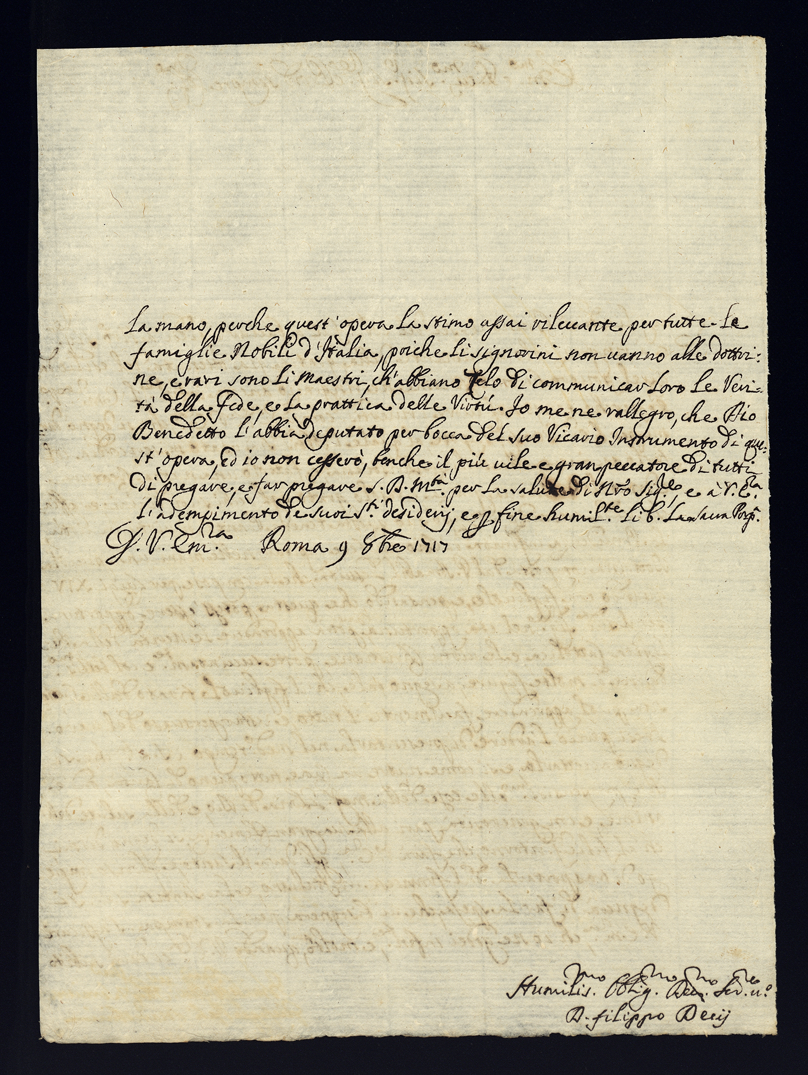 la mano, perche quest'opera la stimo assai rilevante per tutte le
famiglie Nobili d'Italia, poiche li signorini non vanno alle dottri:
ne, e rari sono li Maestri, ch'abbiano Zelo di communicar loro le Veri:
tà della Fede, e la prattica delle Virtù. Io me ne rallegro, che Dio
Benedetto l'abbia deputato per bocca del suo Vicario Instrumento di que:
st'opera, ed io non cesserò, benche il più vile e gran peccatore di tutti
di pregare, e far pregare S. D. M.tà per la salute di N'ro Sig.re, e à V. E.za
l'adempimento de suoi s.ti desiderij, e p fine humil.te li b. la sacra Porp.a
D. V. Em.za Roma 9 8bre 1717
Humilis.mo Oblig.mo Dev.mo Ser.re
D. Filippo Decij